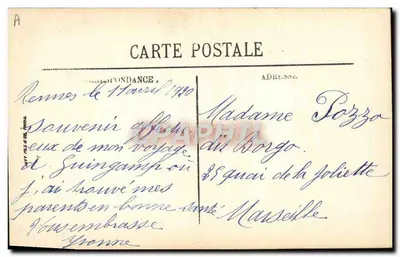 A
CARTE POSTALE
CORRESPONDANCE.
ADRESSE
Rennes le 11 avril 1920
souvenir affectu
eux de mon voyage
à Guingamp où
j'ai trouvé mes
parents en bonne santé
Vous embrasse
Yvonne
Madame Pozzo
di Borgo.
25 quai de la Joliette
Marseille